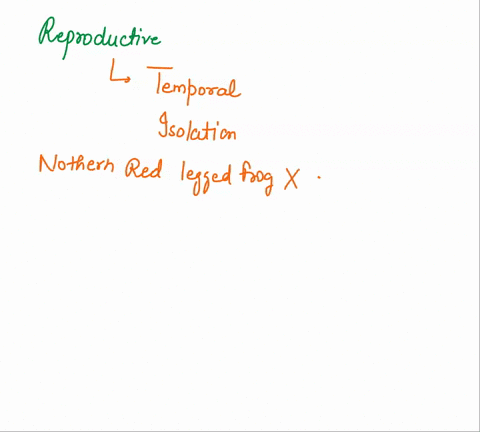 Reproductive
↳ Temporal
Isolation
Nothern Red legged frog X .